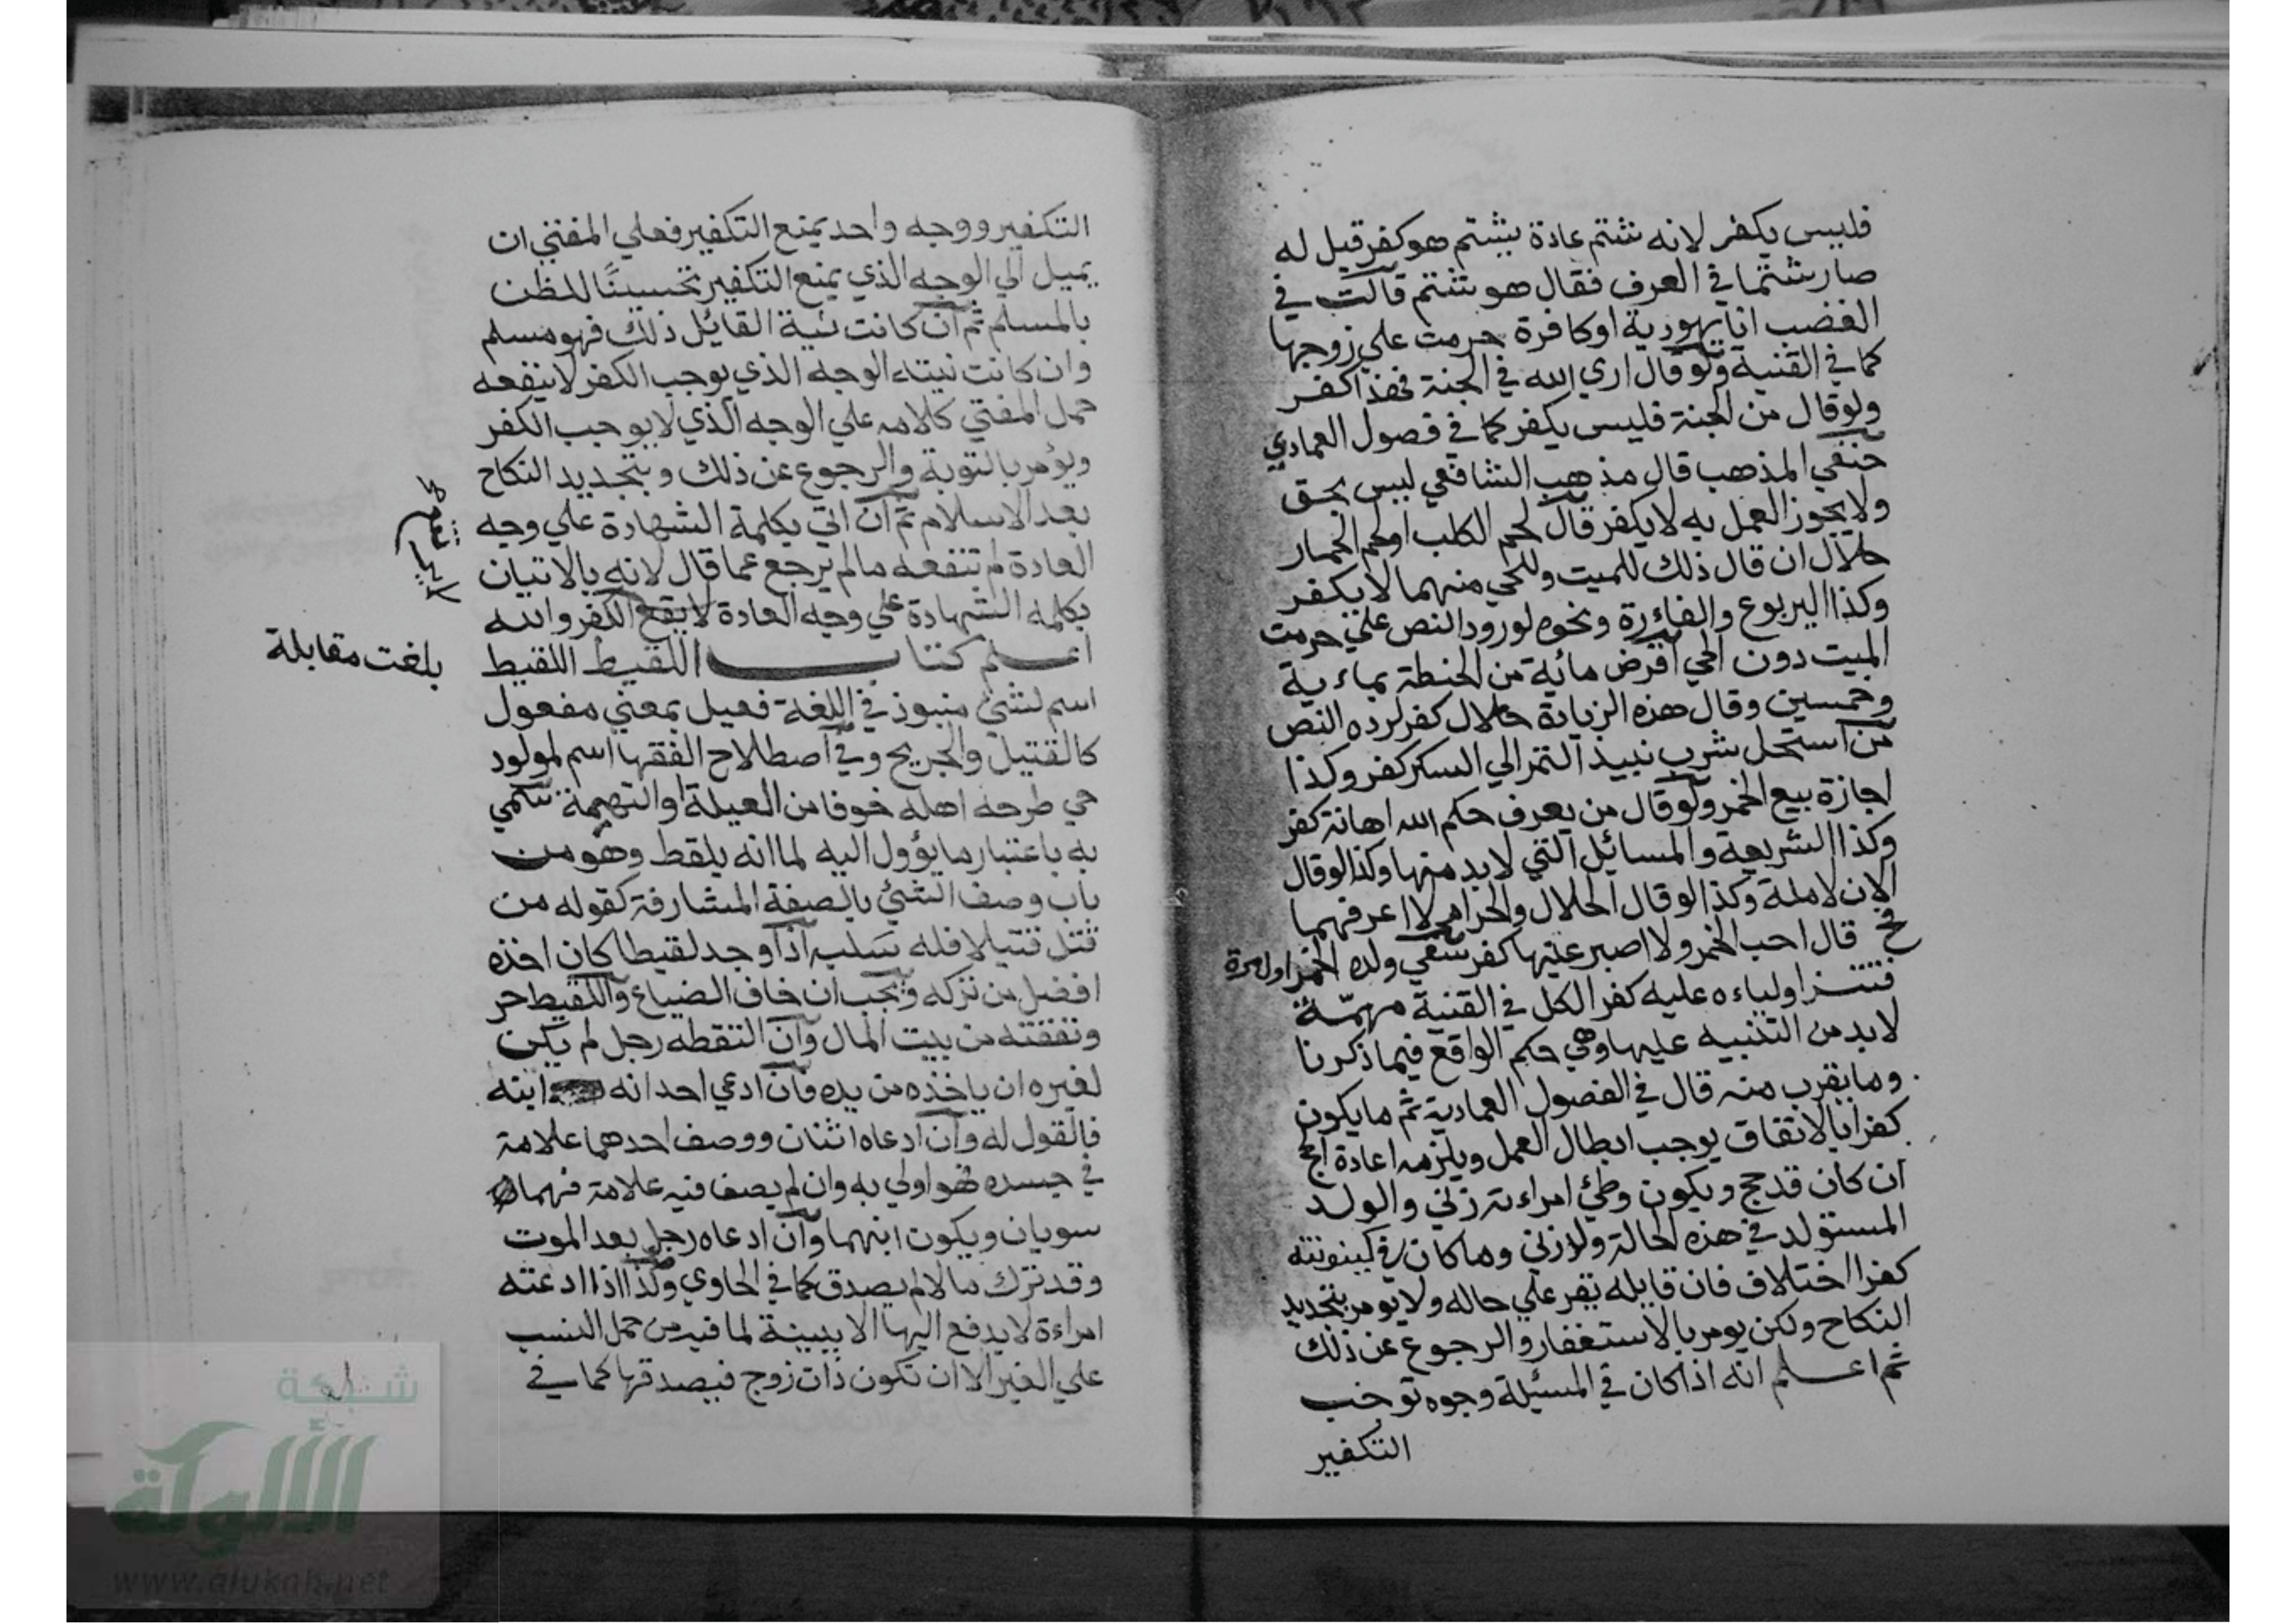 فليس بكفر لانه شتم عادة يشتم هو كفر قيل له
صار شتما في العرف فقال هو شتم قالت في
الغضب انا يهودية او كافرة حرمت علي زوجها
كما في القنية ولو قال اري الله في الجنة فهذا كفر
ولو قال من الجنة فليس بكفر كما في فصول العمادي
حنفي المذهب قال مذهب الشافعي ليس بحق
ولا يجوز العمل به لا يكفر قال لحم الكلب او لحم الحمار
حلال ان قال ذلك للميت وللحي منهما لا يكفر
وكذا اليربوع والفاءرة ونحوه لورود النص علي حرمت
الميت دون الحي اقرض مائة من الحنطة بماءية
وخمسين وقال هذه الزيادة حلال كفر لرده النص
من استحل شرب نبيذ التمر الي السكر كفر وكذا
اجازة بيع الخمر ولو قال من يعرف حكم الله اهانة كفر
وكذا الشريعة والمسائل التي لابد منها وكذا لو قال
الان لاملة وكذا لو قال الحلال والحرام لا اعرفهما
قال احب الخمر ولا اصبر عنها كفر سقي ولده الخمر اول مرة
فنثر اولياءه عليه كفر الكل في القنية مهمّة
لابد من التنبيه عليها وهي حكم الواقع فيما ذكرنا
وما يقرب منه قال في الفصول العمادية ثم ما يكون
كفرا بالاتفاق يوجب ابطال العمل ويلزمه اعادة الحج
ان كان قد حج ويكون وطئ امراءته زني والولد
المستولد في هذه الحالة ولد زني وما كان في كينونته
كفرا اختلاف فان قايله يقر علي حاله ولا يومر بتجديد
النكاح ولكن يومر بالاستغفار والرجوع عن ذلك
ثم اعلم انه اذا كان في المسئلة وجوه توجب
التكفير
التكفير ووجه واحد يمنع التكفير فعلي المفتي ان
يميل الي الوجه الذي يمنع التكفير تحسينًا للظن
بالمسلم ثم ان كانت نية القائل ذلك فهو مسلم
وان كانت نيته الوجه الذي يوجب الكفر لا ينفعه
حمل المفتي كلامه علي الوجه الذي لا يوجب الكفر
ويؤمر بالتوبة والرجوع عن ذلك وبتجديد النكاح
بعد الاسلام ثم ان اتي بكلمة الشهادة علي وجه
العادة لم تنفعه ما لم يرجع عما قال لانه بالاتيان
بكلمة الشهادة علي وجه العادة لا يقع الكفر والله
اعلم كتاب اللقيط اللقيط
بلغت مقابلة
اسم لشئ منبوذ في اللغة فعيل بمعني مفعول
كالقتيل والجريح وفي اصطلاح الفقها اسم لمولود
حي طرحه اهله خوفا من العيلة او التهمة سمي
به باعتبار ما يؤول اليه لما انه يلقط وهو من
باب وصف الشئ بالصفة المشارفة كقوله من
قتل قتيلا فله سلبه اذا وجد لقيطا كان اخذه
افضل من تركه ويجب ان خاف الضياع واللقيط حر
ونفقته من بيت المال وان التقطه رجل لم يكن
لغيره ان ياخذه من يده فان ادعي احد انه ابنه
فالقول له وان ادعاه اثنان ووصف احدهما علامة
في جسده فهو اولي به وان لم يصف فيه علامة فهما
سويان ويكون ابنهما وان ادعاه رجل بعد الموت
وقد ترك مالا لم يصدق كما في الحاوي وكذا اذا ادعته
امراءة لا يدفع اليها الا ببينة لما فيه من حمل النسب
علي الغير الا ان تكون ذات زوج فيصدقها كما في
شبكة
الألوكة
www.alukah.net